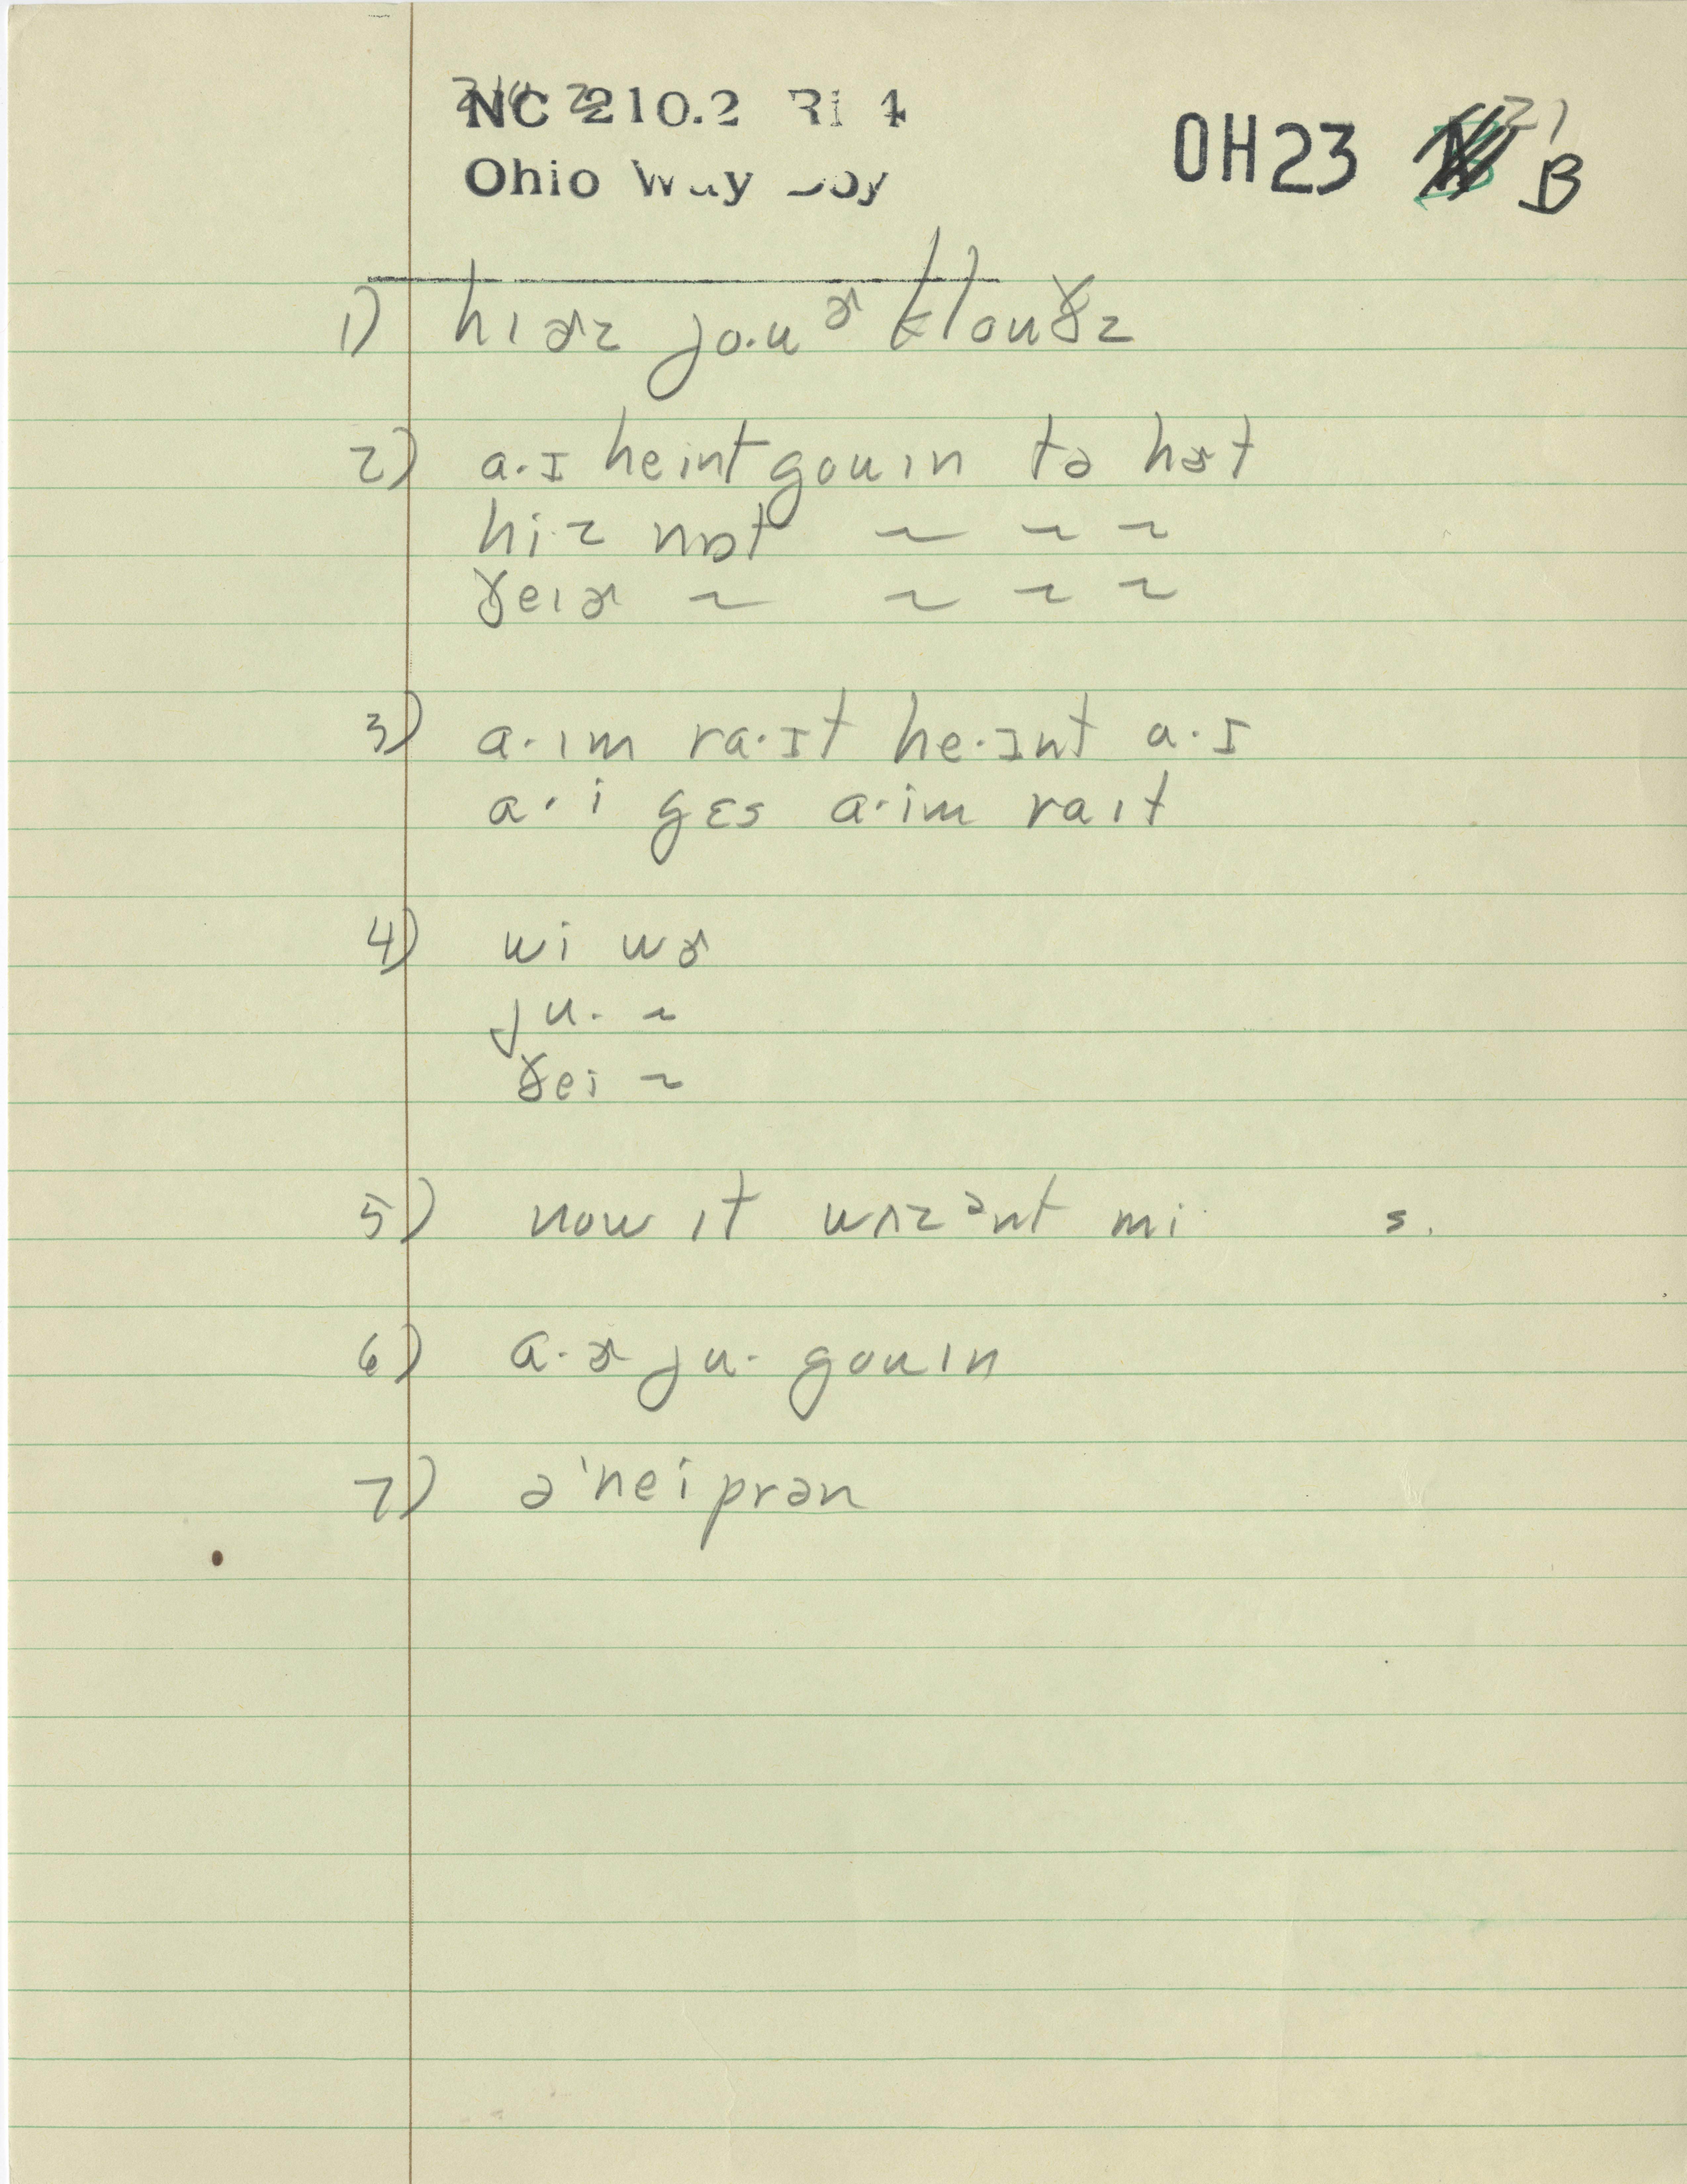 NC 210.2 Ri 4
Ohio Way Boy
OH23 B
21
1) hɪɚz jo.uᵊ klouðz
2) a.ɪ heint gouɪn tə hɚt
hi.z nɒt ~ ~ ~
ðeɪɚ ~ ~ ~ ~
3) a.ɪm ra.ɪt he.ɪnt a.ɪ
a.i gɛs a.im raɪt
4) wi wɚ
ju. ~
ðei ~
5) now ɪt wʌzᵊnt mi s.
6) a.ɚ ju. gouɪn
7) ə'neiprən